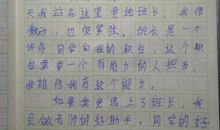 天我站在这里竞选班长,我很
激动,也很紧张。班长是一个
许多同学向往的职位,这个职
位需要一个有能力的人担当,
我相信我有这个能力。
如果我竞选上了班长,我
会做老师的好助手,同学的好